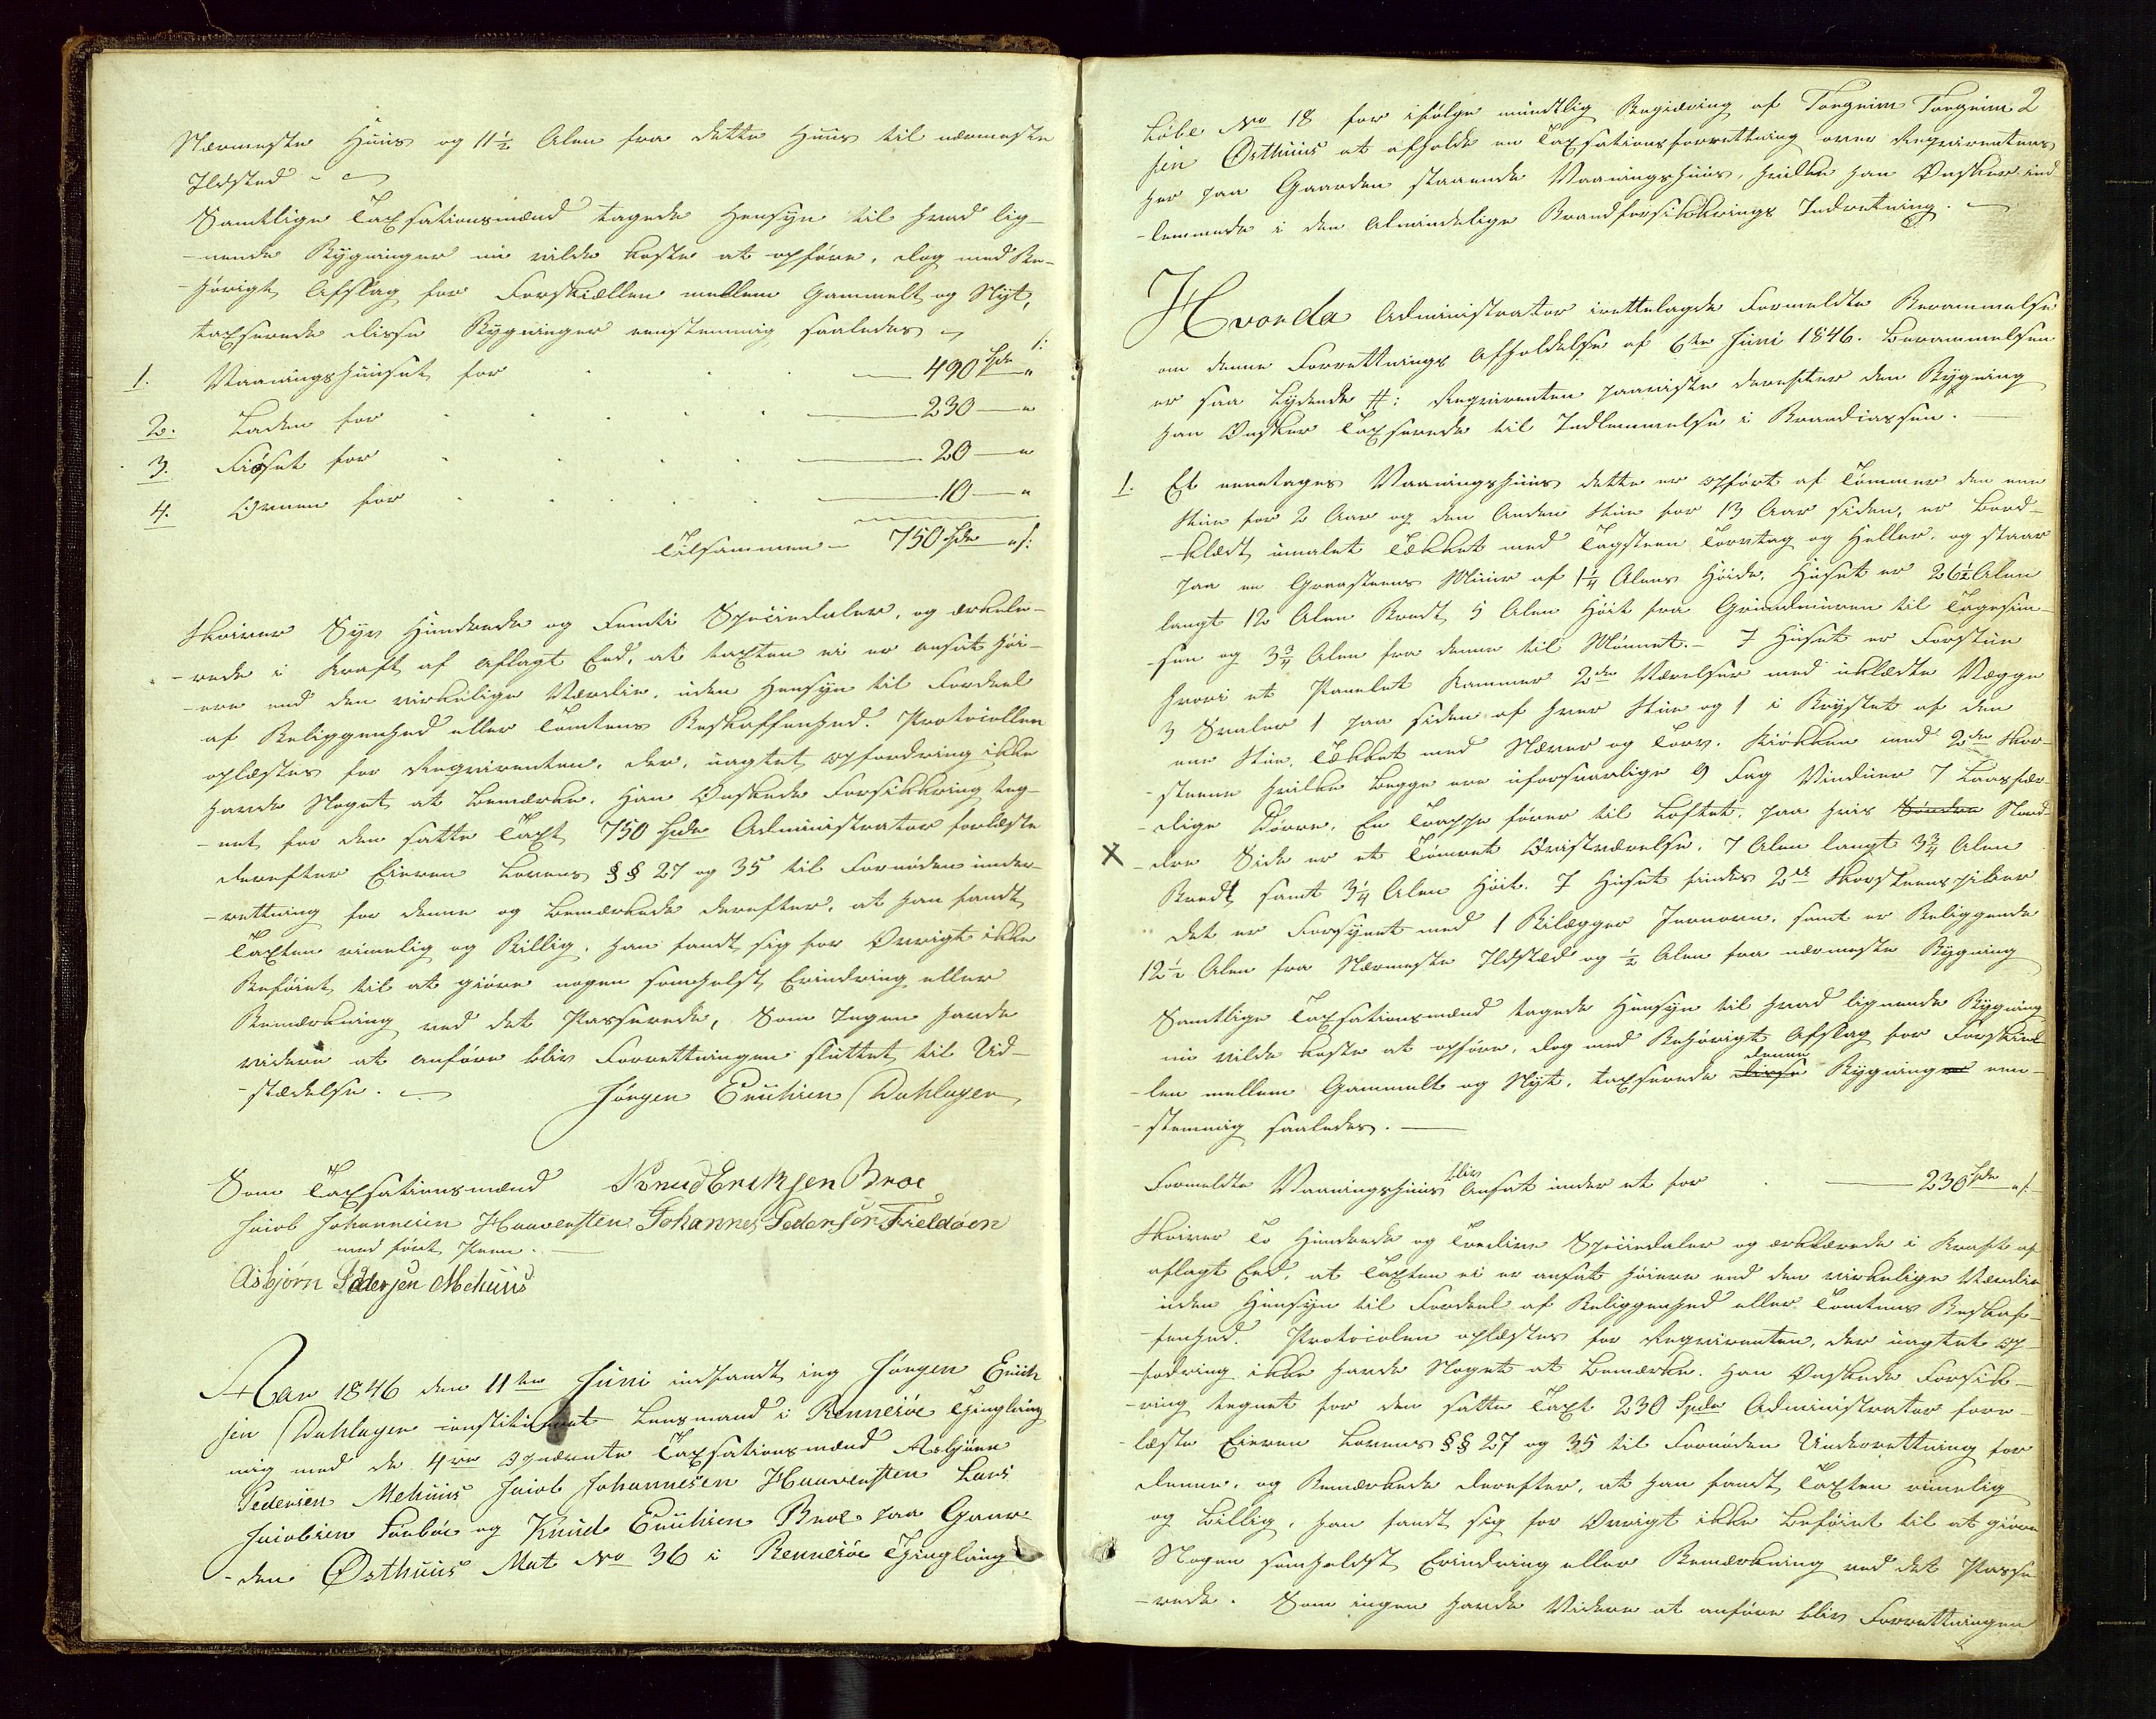 Nærmeste Huus og 11½ Alen fra dette Huus til nærmeste
Ildsted
Samtlige Taxsationsmænd tagede Hensyn til hvad lig-
-nende Bygninger nu vilde koste at opføre, dog med Be-
-hørigt Afslag for Forskiællen mellem Gammelt og Nyt,
taxserede disse Bygninger eenstemmig saaledes
1. Vaaningshuuset for 490 Spd "
2. Laden for 230 "
3. Fiøset for 20 "
4. Ovnen for 10 "
Tilsammen 750 Spd "
skriver Syv Hundrede og Femti Speciedaler, og erklæ-
-rede i Kraft af aflagt Eed, at taxten ei er ansat høi-
-ere end den virkelige Værdie, uden Hensyn til Fordeel
af Beliggenhed eller Tomtens Beskaffenhed. Protocollen
oplæstes for Requirenten, der, uagtet opfordring ikke
havde Noget at Bemærke. Han Ønskede Forsikkring teg-
-net for den satte Taxt 750 Spd Administrator forelæste
derefter Eieren Lovens §§ 27 og 35 til Fornøden under-
-rettning for denne og Bemærkede derefter, at han fandt
Taxten rimelig og Billig, han fandt sig for Øvrigt ikke
Beføiet til at giøre nogen somhelst Erindring eller
Bemærkning ved det Passerede, Som Ingen havde
videre at anføre blev Forrettningen sluttet til Ud-
-stædelse.
Jørgen Erichsen Dahlager
Som Taxsationsmænd Knud Eriksen Broe
Jacob Johannesen Haavensten Johannes Pedersen Fieldøen
med ført Penn.
Asbjørn Pedersen Mehuus
Aar 1846 den 11te Juni indfandt jeg Jørgen Erich
sen Dahlager constitueret Lensmand i Rennesøe Thinglaug
mig med de 4re opnævnte Taxsationsmænd Asbjørn
Pedersen Mehuus Jacob Johannesen Haavensten Lars
Jacobsen Sørbøe og Knud Erichsen Broe paa Gaar-
-den Østhuus Mat No 36 i Rennesøe Thinglaug
2
Løbe No 18 for ifølge mundtlig Begiæring af Torgeim Torgeim
sen Østhuus at afholde en Taxsationsforrettning over Requirentens
her paa Gaarden staaende Vaaningshuus, hvilke han Ønsker ind-
-lemmede i den Almindelige Brandforsikkrings Indretning.
Hvorda Administrator irettelagde Formeldte Berammelse
om denne Forrettnings Afholdelse af 6te Juni 1846. Berammelsen
er saa Lydende #: Requirenten paaviste derefter den Bygning
han Ønsker Taxserede til Indlemmelse i Brandcassen.
1. Et eenetages Vaaningshuus dette er opført af Tømmer den ene
Stue for 2 Aar og den Anden Stue for 13 Aar siden, er Bord-
-klædt umalet Tækket med Tagsteen Torvtag og Heller, og staar
paa en Graasteens Muur af 1¼ Alens Høide. Huset er 26½ Alen
langt 12 Alen Bredt 5 Alen Høit fra Grundmuren til Tagesim-
-sen og 3¾ Alen fra denne til Mønnet. I Huset er Forstue
hvori et Panelet Kammer 2de Værelser med uklædte Vægge
3 Svaler 1 paa siden af hver Stue og 1 i Brystet af den
ene Stue, Tækket med Næver og Torv. Kiøkken med 2de Skor-
-steene hvilke Begge ere uforsvarlige 9 Fag Vinduer 7 Laasfær-
-dige Dørre. En Trappe fører til Loftet, paa hvis Søndre Nord-
X -dre Side er et Tømret Qvistværelse, 7 Alen langt 3¾ Alen
Bredt samt 3¼ Alen Høit. I Huset findes 2de Skorsteenspiber
det er Forsynet med 1 Bilægger Jernovn, samt er Beliggende
12½ Alen fra Nærmeste Ildsted og ½ Alen fra nærmeste Bygning
Samtlige Taxsationsmænd tagede Hensyn til hvad lignende Bygning
nu vilde koste at opføre, dog med Behørigt Afslag for Forskiæl-
-len mellem Gammelt og Nyt, taxserede disse denne Bygninger een-
-stemmig saaledes.
Formeldte Vaaningshuus blev Ansat under et for 230 Spd "
skriver To Hundrede og Tredive Speciedaler og erklærede i Kraft af
aflagt Eed, at Taxten ei er ansat høiere end den virkelige Værdie
uden Hensyn til Fordeel af Beliggenhed eller Tomtens Beskaf-
-fenhed. Protocolen oplæstes for Requirenten, der uagtet op-
-fodring ikke havde Noget at Bemærke. Han Ønskede Forsik-
-ring tegnet for den satte Taxt 230 Spd Administrator fore-
-læste Eieren Lovens §§ 27 og 35 til Fornøden Underrettning for
denne, og Bemærkede derefter, at han fandt Taxten rimelig
og Billig, han fandt sig for Øvrigt ikke Beføiet til at giøre
Nogen somheldst Erindring eller Bemærkning ved det Passe
-rede. Som ingen havde Videre at anføre blev Forrettningen